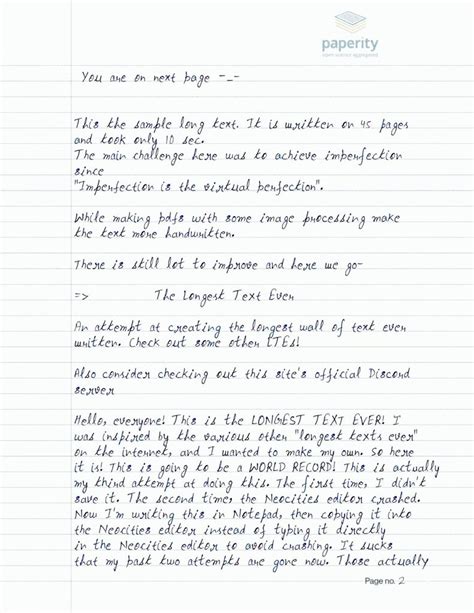 paperity
open science aggregated
You are on next page -_-
This the sample long text. It is written on 45 pages
and took only 10 sec.
The main challenge here was to achieve imperfection
since
"Imperfection is the virtual perfection".
While making pdfs with some image processing make
the text more handwritten.
There is still lot to improve and here we go-
=> The Longest Text Ever
An attempt at creating the longest wall of text ever
written. Check out some other LTEs!
Also consider checking out this site's official Discord
server
Hello, everyone! This is the LONGEST TEXT EVER! I
was inspired by the various other "longest texts ever"
on the internet, and I wanted to make my own. So here
it is! This is going to be a WORLD RECORD! This is actually
my third attempt at doing this. The first time, I didn't
save it. The second time, the Neocities editor crashed.
Now I'm writing this in Notepad, then copying it into
the Neocities editor instead of typing it directly
in the Neocities editor to avoid crashing. It sucks
that my past two attempts are gone now. Those actually
Page no. 2